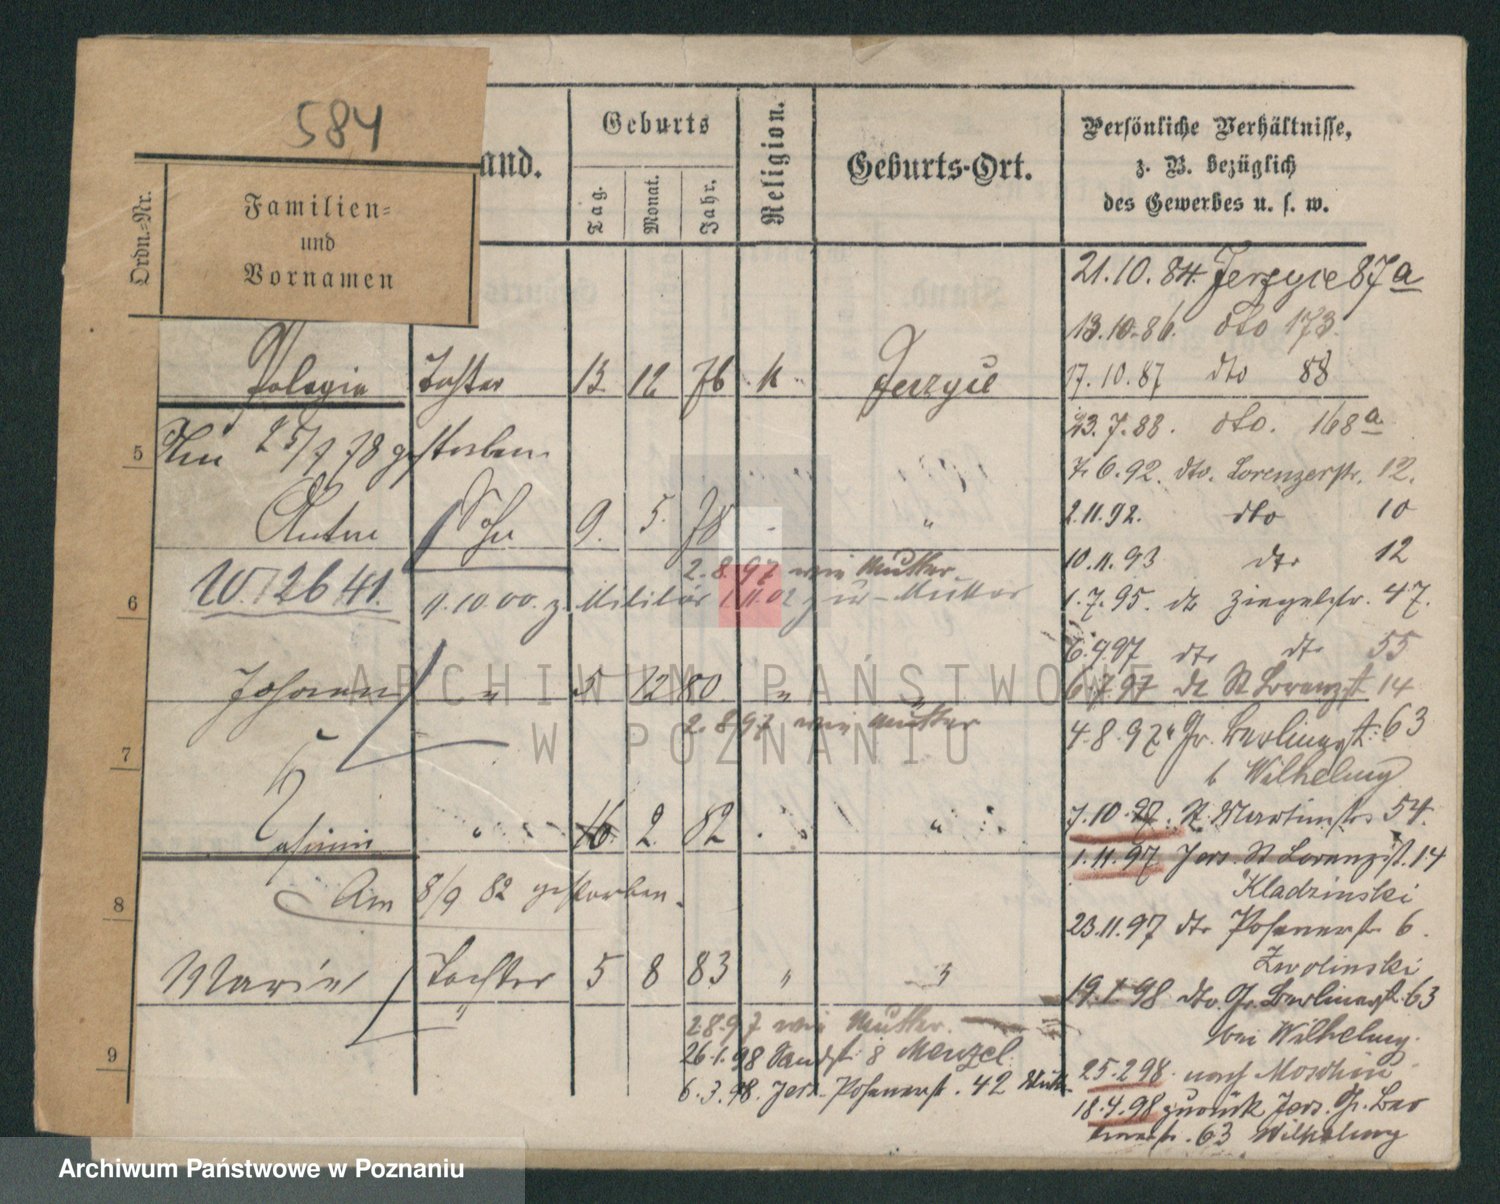 584
Ordn.-Nr.
Familien-
und
Vornamen
and.
Geburts
Tag.
Monat.
Jahr.
Religion.
Geburts-Ort.
Persönliche Verhältnisse,
z. B. bezüglich
des Gewerbes u. s. w.
21.10.84. Jerzyce 87a
13.10.86. dto 173.
Pelagia Tochter 13. 12 76 k Jerzyce
17.10.87 dto 88
23.7.88. dto. 168a
5 25/7 78 gestorben.
7.6.92. dto. Lorenzerstr. 12.
Anton Sohn 9. 5. 78 "
2.11.92. dto 10
10.11.93 dto 12
2.8.97 wie Mutter
6 W. 12641. 11.10.00. z. Militär zur Mutter
1.7.95. dto Ziegelstr. 47.
dto dto 55
Johann " 5 12 80 " "
6.7.97 dto St Lorenzst 14
2.8.97 wie Mutter
4.8.97 Gr. Berlinerst. 63
7
b Wilhelmy
" 16. 2. 82 " "
7.10.97. St. Martinstr 54.
1.11.97 Jers. St Lorenzst. 14
Kladzinski
8 Am 8/9 82 gestorben.
23.11.97 dto Posenerstr 6.
Zwolinski
Marie Tochter 5 8 83 "
19.1.98 dto. Gr. Berlinerst. 63
bei Wilhelmy.
2.8.97 wie Mutter.
9 26.1.98 Sandst. 8 Menzel.
25.2.98 nach Moschin
6.3.98. Jers. Posenerst. 42
18.4.98 zurück Jers. Gr. Ber
linerstr. 63 Wilhelmy
ARCHIWUM PAŃSTWOWE
W POZNANIU
Archiwum Państwowe w Poznaniu